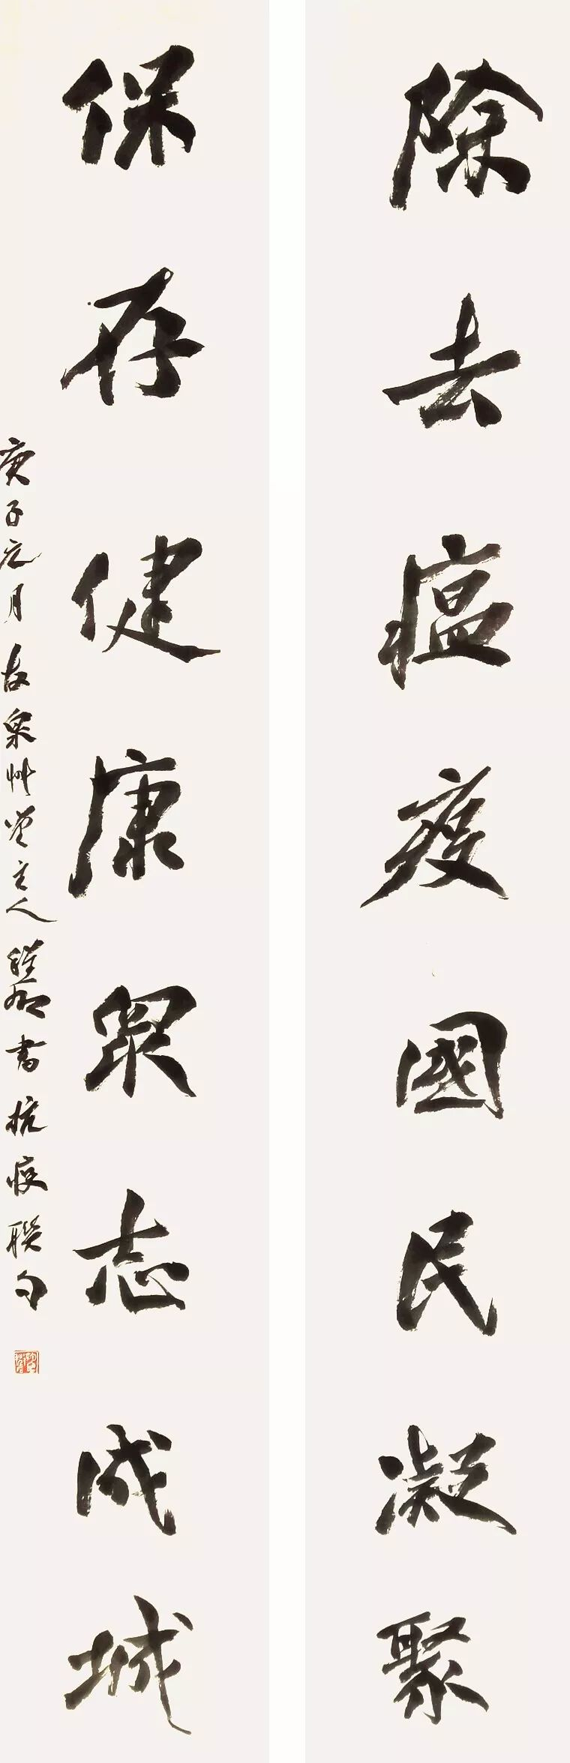 除去瘟疫國民凝聚
保存健康眾志成城
庚子元月古泉艸堂主人 書抗疫聯句